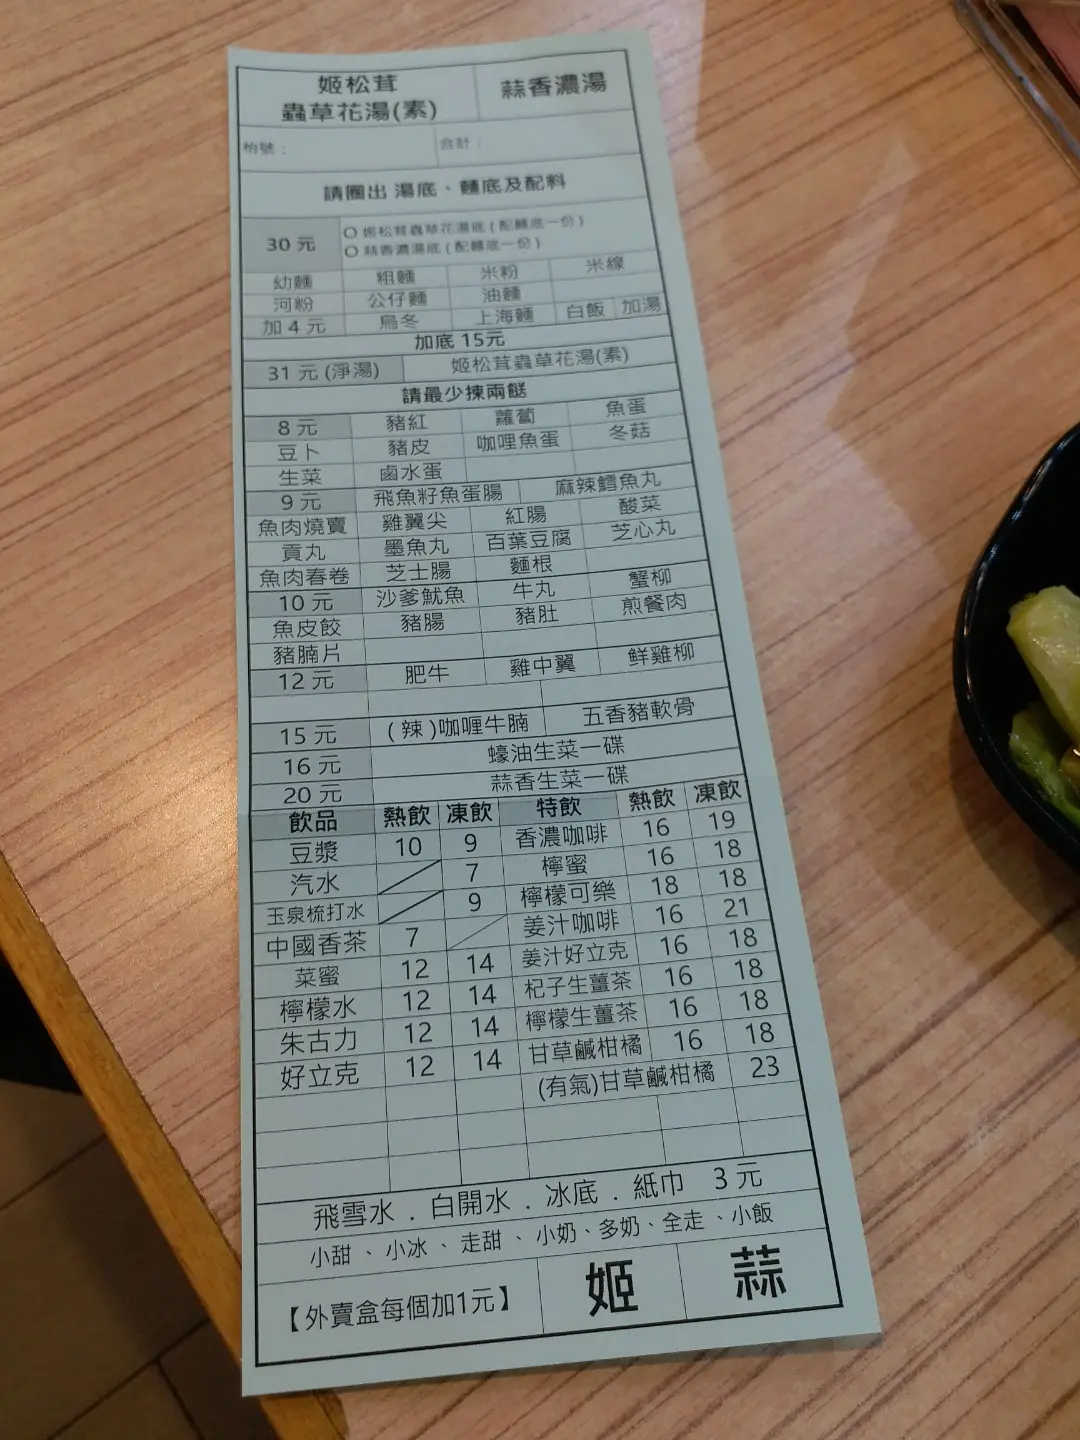 姬松茸 蒜香濃湯
蟲草花湯(素)
枱號： 合計：
請圈出 湯底、麵底及配料
30 元 ○ 姬松茸蟲草花湯底 ( 配麵底一份 )
○ 蒜香濃湯底 ( 配麵底一份 )
幼麵 粗麵 米粉 米線
河粉 公仔麵 油麵
加 4 元 烏冬 上海麵 白飯 加湯
加底 15元
31 元 (淨湯) 姬松茸蟲草花湯(素)
請最少揀兩餸
8 元 豬紅 蘿蔔 魚蛋
豆卜 豬皮 咖哩魚蛋 冬菇
生菜 鹵水蛋
9 元 飛魚籽魚蛋腸 麻辣鱈魚丸
魚肉燒賣 雞翼尖 紅腸 酸菜
貢丸 墨魚丸 百葉豆腐 芝心丸
魚肉春卷 芝士腸 麵根
10 元 沙爹魷魚 牛丸 蟹柳
魚皮餃 豬腸 豬肚 煎餐肉
豬腩片
12 元 肥牛 雞中翼 鮮雞柳
15 元 ( 辣 )咖喱牛腩 五香豬軟骨
16 元 蠔油生菜一碟
20 元 蒜香生菜一碟
飲品 熱飲 凍飲 特飲 熱飲 凍飲
豆漿 10 9 香濃咖啡 16 19
汽水 7 檸蜜 16 18
玉泉梳打水 9 檸檬可樂 18 18
中國香茶 7 姜汁咖啡 16 21
菜蜜 12 14 姜汁好立克 16 18
檸檬水 12 14 杞子生薑茶 16 18
朱古力 12 14 檸檬生薑茶 16 18
好立克 12 14 甘草鹹柑橘 16 18
(有氣)甘草鹹柑橘 23
飛雪水 . 白開水 . 冰底 . 紙巾 3 元
小甜 、 小冰 、 走甜 、 小奶、多奶、全走 、小飯
【外賣盒每個加1元】 姬 蒜